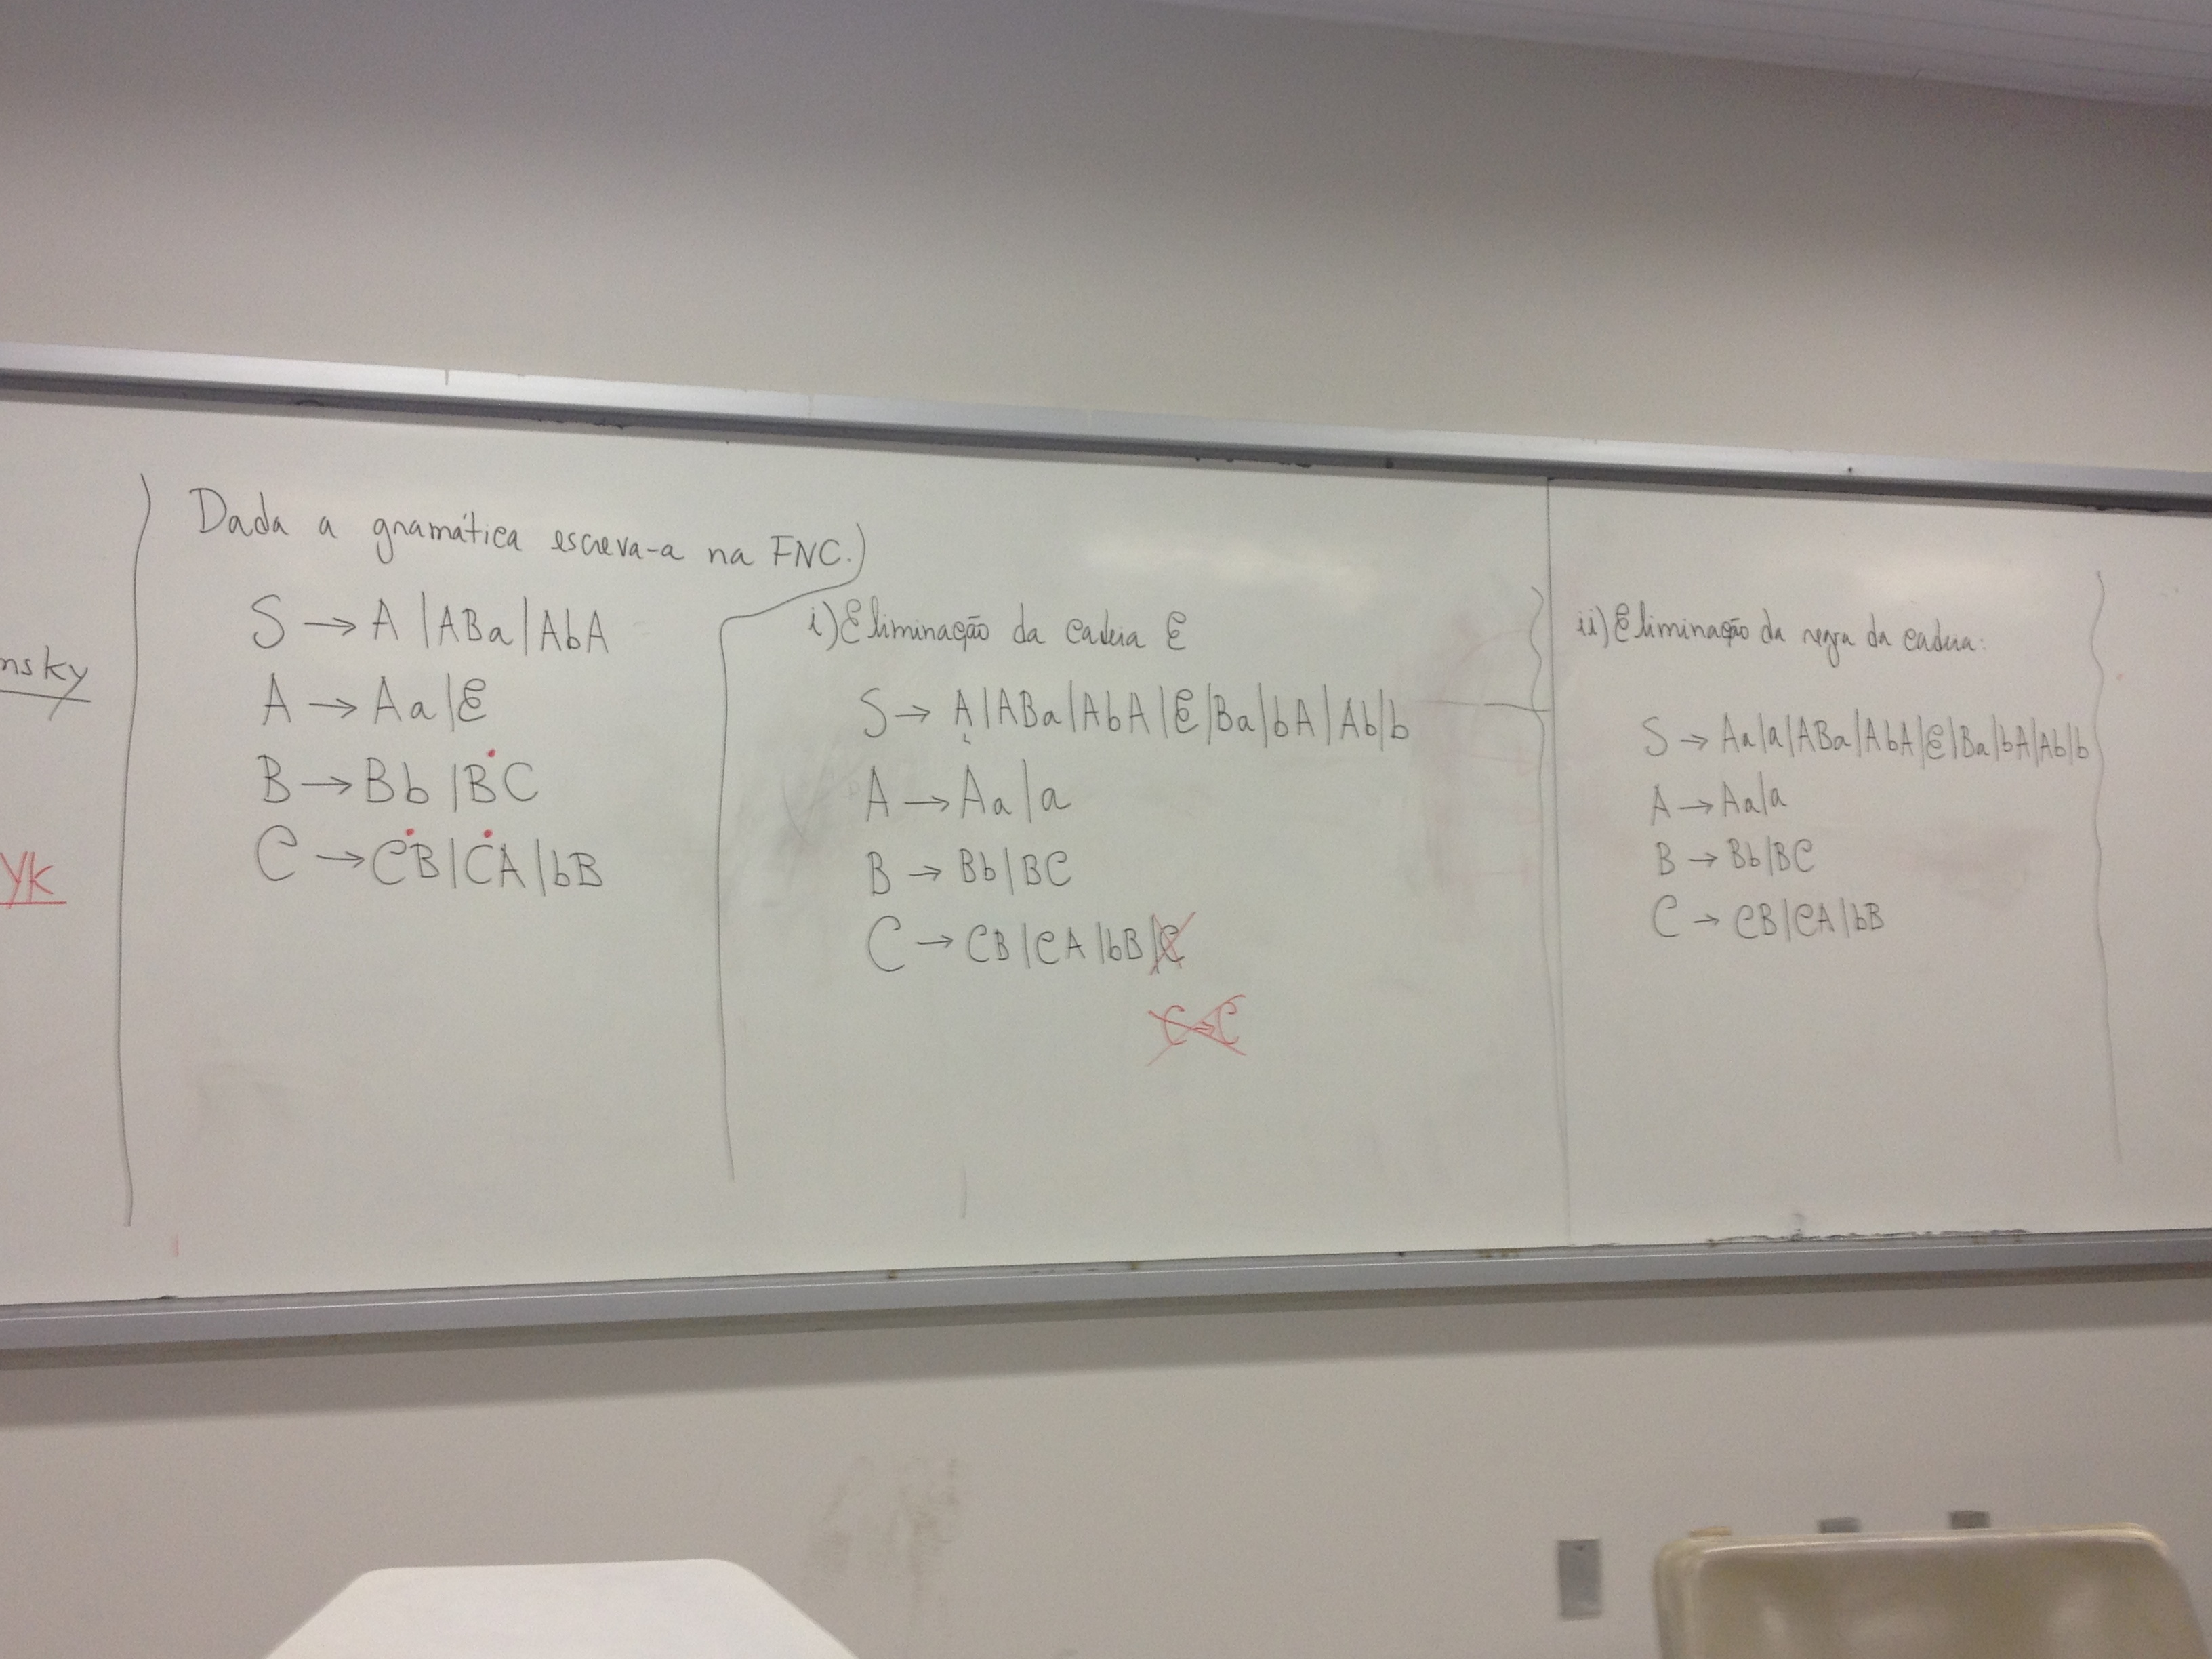 nsky
Yk
Dada a gramática escreva-a na FNC.
S → A | ABa | AbA
A → Aa | ε
B → Bb | BC
C → CB | CA | bB
i) Eliminação da cadeia ε
S → A | ABa | AbA | ε | Ba | bA | Ab | b
A → Aa | a
B → Bb | BC
C → CB | CA | bB | C
C → C
ii) Eliminação da regra da cadeia:
S → Aa | a | ABa | AbA | ε | Ba | bA | Ab | b
A → Aa | a
B → Bb | BC
C → CB | CA | bB